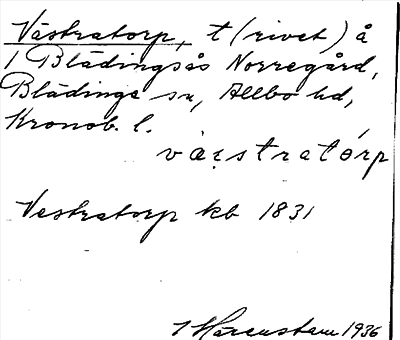 Västratorp, t (rivet) å
1 Blädingsås Norregård,
Blädinge sn, Allbo hd,
Kronob. l.
väs̩tratórp
Vestratorp kb 1831
I Härenstam 1936